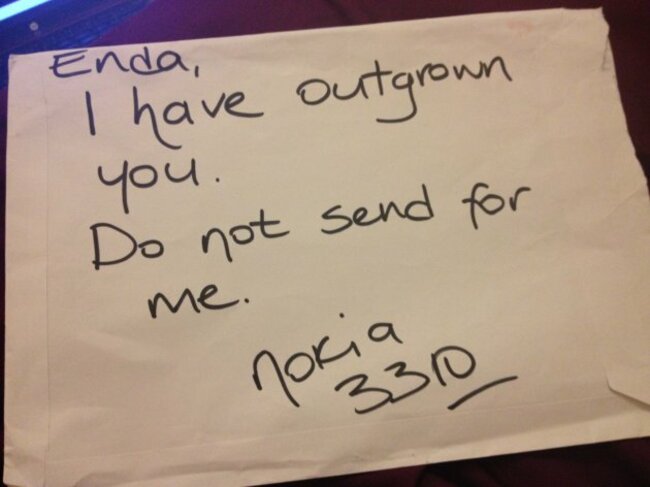 Enda,
I have outgrown
you.
Do not send for
me.
nokia
3310